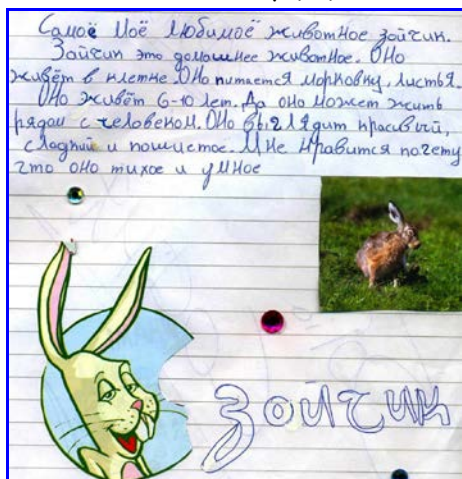 Самоё Моё любимоё животное зойчик.
Зойчик это домошнее животное. Оно
живёт в клетке. Оно питается морковку, листья.
Оно живёт 6-10 лет. Да оно может жить
рядом с человеком. Оно выглядит красивый,
сладкий и пошистое. Мне нравится почему
что оно тихое и умное
зойчик